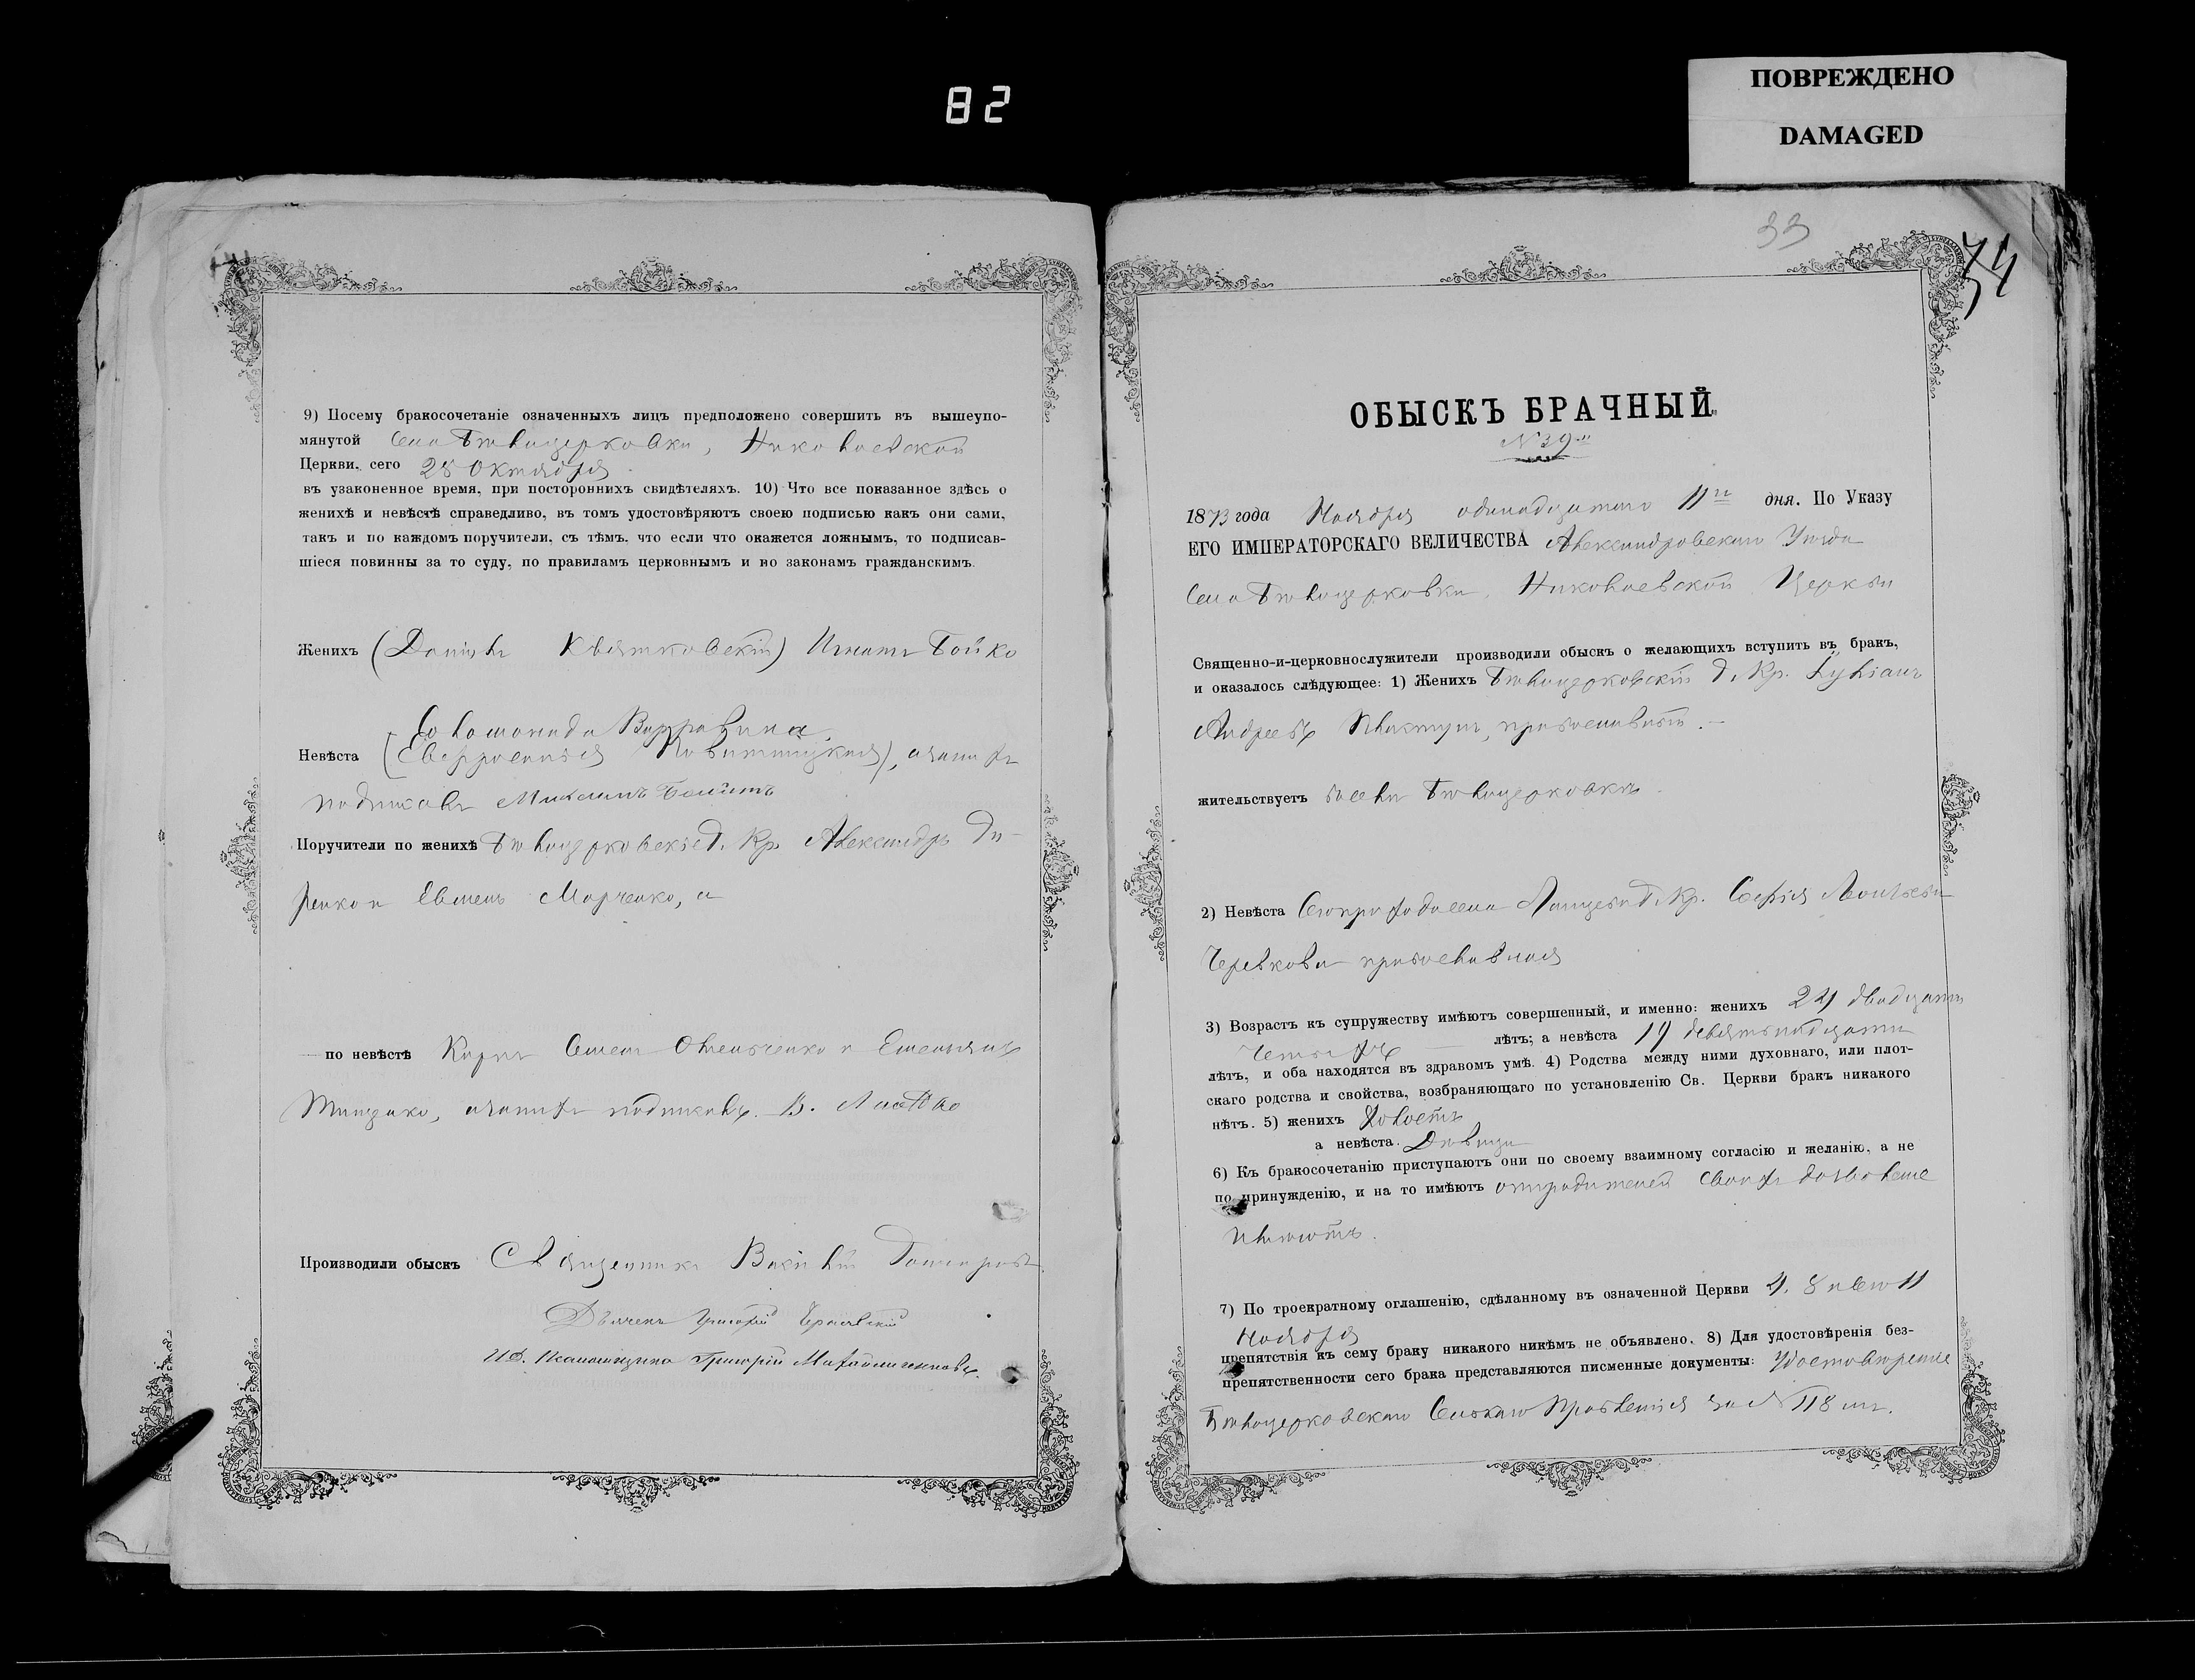 82
ПОВРЕЖДЕНО
DAMAGED
9) Посему бракосочетаніе означенныхъ лицъ предположено совершить въ вышеупо-
мянутой села Бѣлоцерковки, Николаевской
Церкви, сего 28 Октября
въ узаконенное время, при постороннихъ свидѣтеляхъ. 10) Что все показанное здѣсь о
женихѣ и невѣстѣ справедливо, въ томъ удостовѣряютъ своею подписью какъ они сами,
такъ и по каждомъ поручители, съ тѣмъ, что если что окажется ложнымъ, то подписав-
шіеся повинны за то суду, по правиламъ церковнымъ и по законамъ гражданскимъ.
Женихъ (Даніилъ Квятковскій) Игнатъ Бойко
Соломонида
Невѣста (Евфросинія), а за нихъ
подписалъ
Поручители по женихѣ Бѣлоцерковскіе Г. Кр. Александръ Ди-
ренко и Евмень Марченко, а
по невѣстѣ Карпъ Семен Омельченко и Емельянъ
Тищенко, а за нихъ подписалъ В.
Производили обыскъ Священникъ
Дьячекъ Григорій
И.Д. Псаломщика Григорій
33
74
ОБЫСКЪ БРАЧНЫЙ
№ 39
1873 года Ноября одинадцатаго 11го дня. По Указу
ЕГО ИМПЕРАТОРСКАГО ВЕЛИЧЕСТВА Александровскаго Уѣзда
села Бѣлоцерковки, Николаевской Церкви
Священно-и-церковнослужители производили обыскъ о желающихъ вступить въ бракъ,
и оказалось слѣдующее: 1) Женихъ Бѣлоцерковскій Г. Кр. Лукіанъ
Андреевъ, православный.
жительствуетъ въ селѣ Бѣлоцерковкѣ
2) Невѣста Г. Кр. Софія Леонтьева
Черевкова православная
3) Возрастъ къ супружеству имѣютъ совершенный, и именно: женихъ 24 двадцать
четырехъ лѣтъ; а невѣста 19 девятнадцати
лѣтъ, и оба находятся въ здравомъ умѣ. 4) Родства между ними духовнаго, или плот-
скаго родства и свойства, возбраняющаго по установленію Св. Церкви бракъ никакого
нѣтъ. 5) женихъ холостъ
а невѣста. Дѣвица
6) Къ бракосочетанію приступаютъ они по своему взаимному согласію и желанію, а не
по принужденію, и на то имѣютъ отъ родителей своихъ дозволеніе
имѣютъ.
7) По троекратному оглашенію, сдѣланному въ означенной Церкви 4. 8 и 11
Ноября
препятствія къ сему браку никакого никѣмъ не объявлено. 8) Для удостовѣренія без-
препятственности сего брака представляются писменные документы: Удостовѣреніе
Бѣлоцерковскаго Сельскаго Правленія за № 118 мъ.